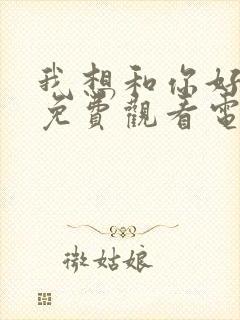 我想和你好
免費觀看電
微姑娘